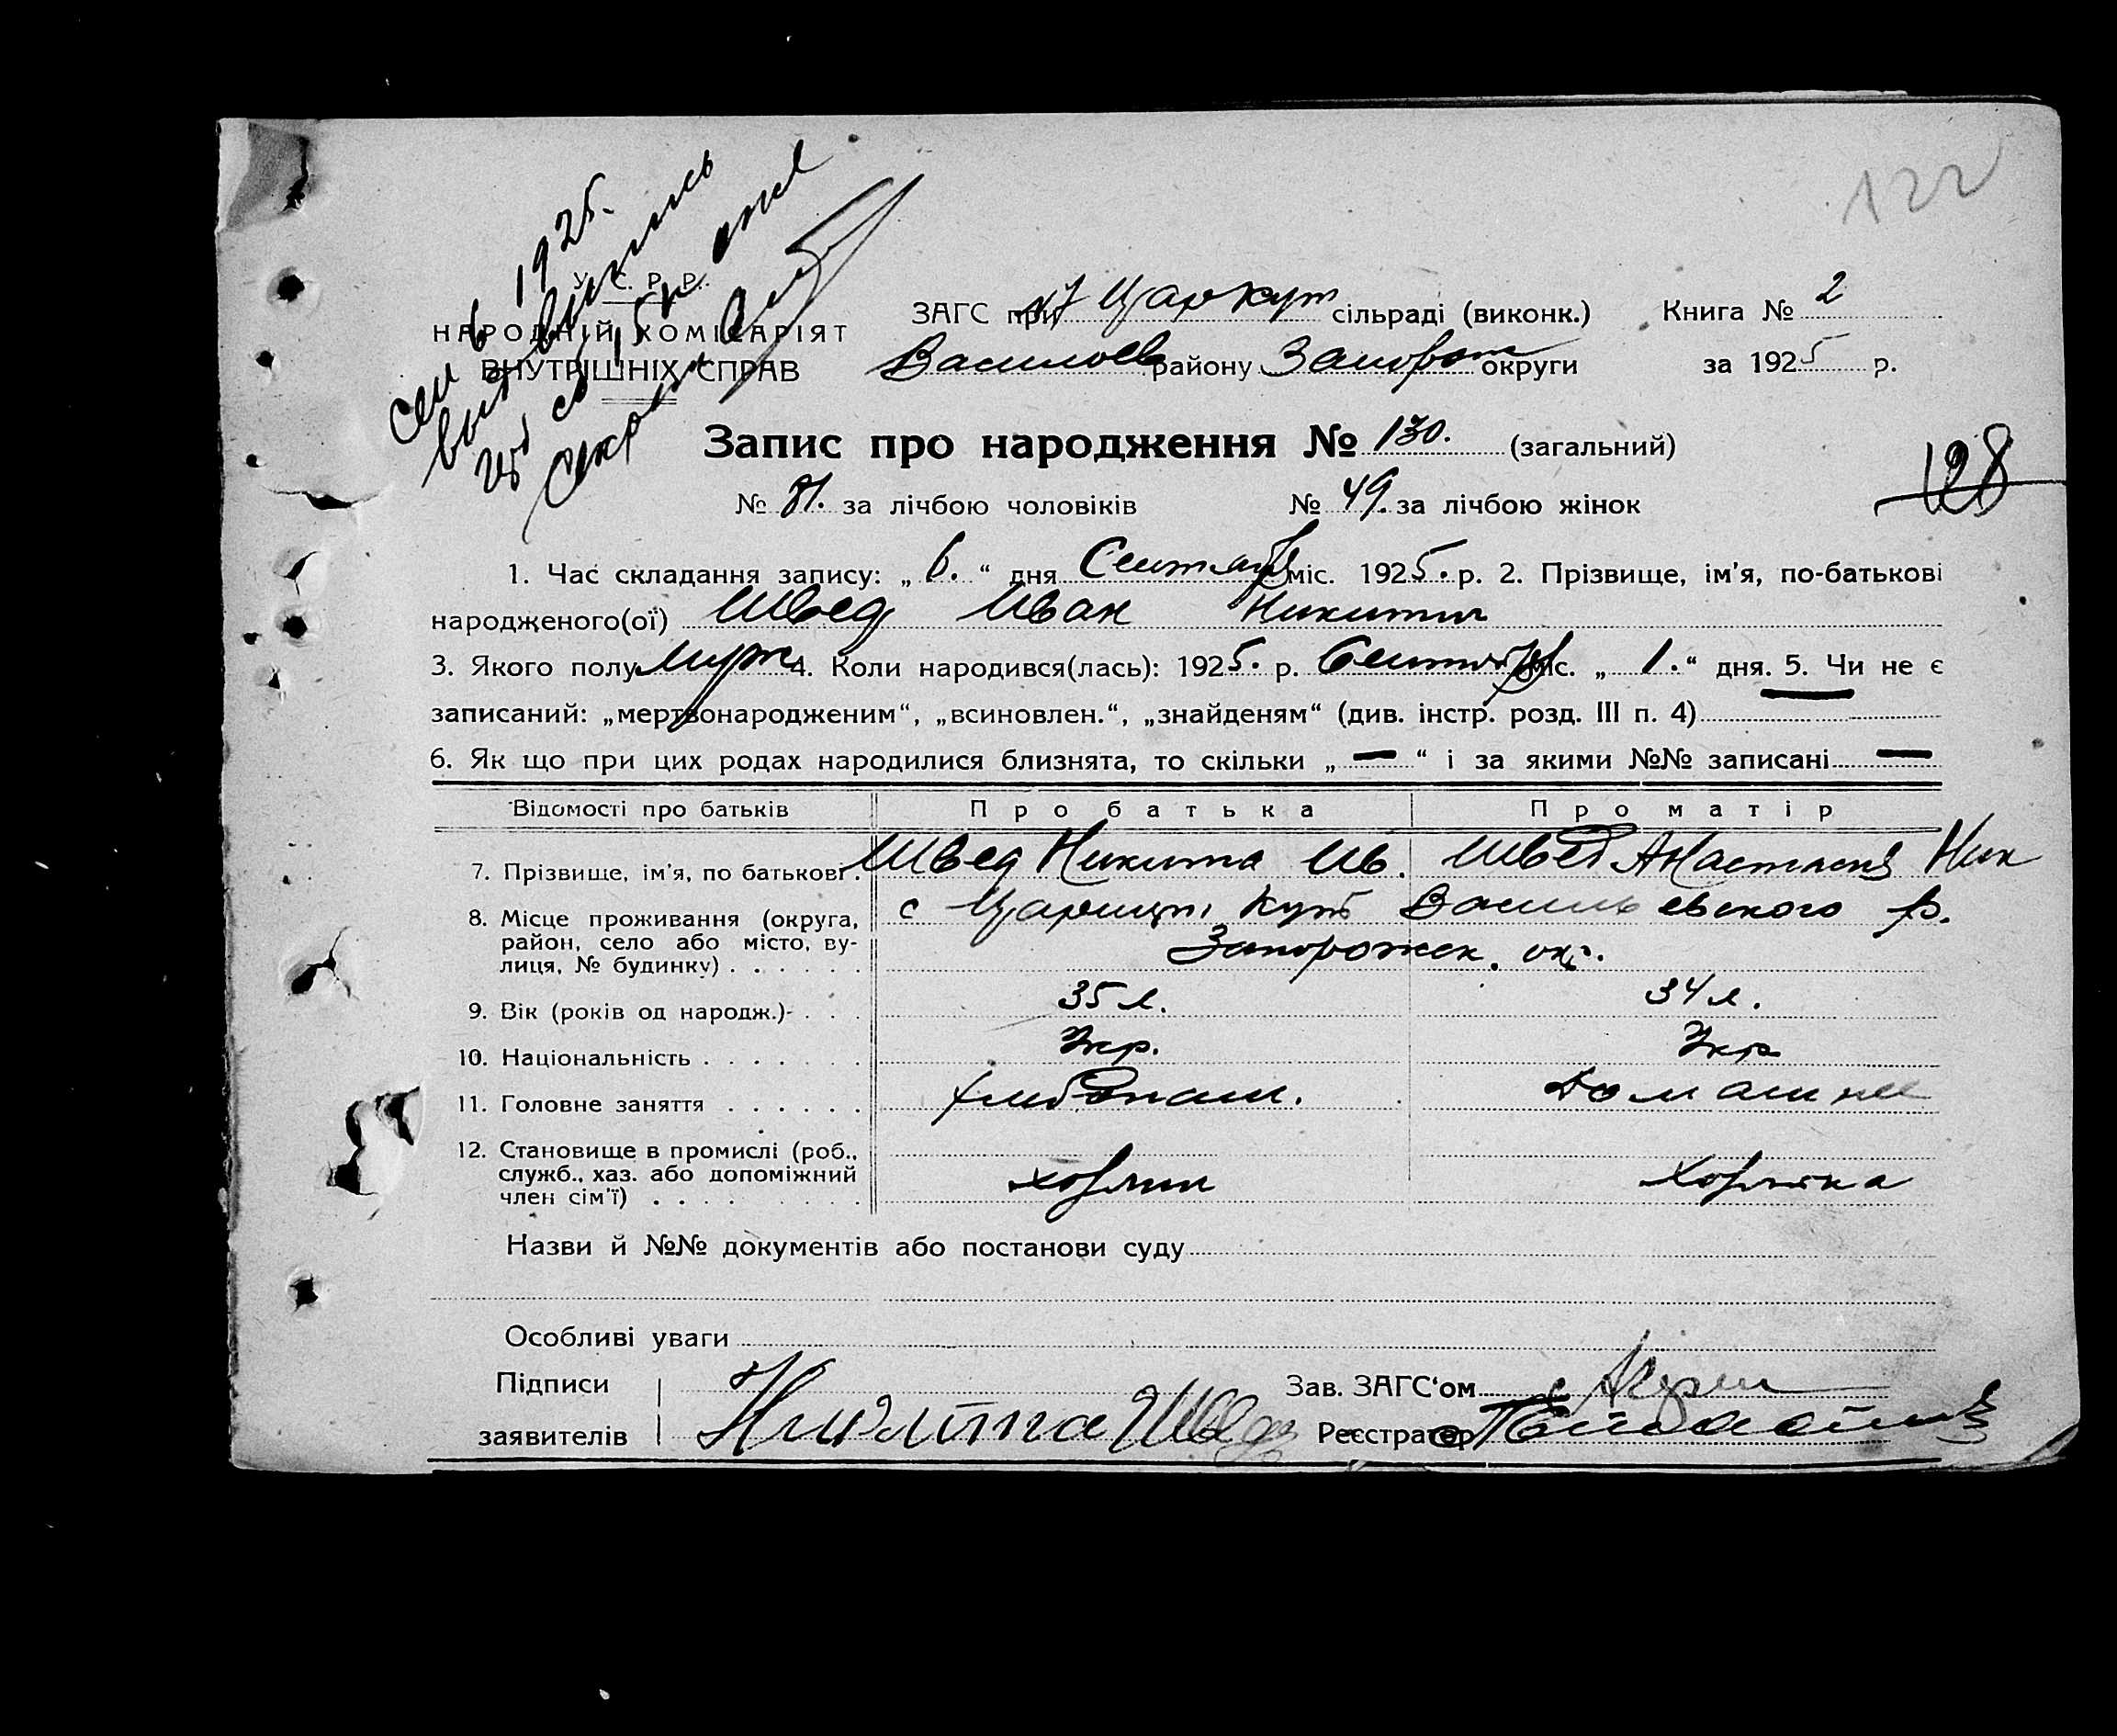 122
1925.
У. С. Р. Р.
НАРОДНІЙ КОМІСАРІЯТ
ВНУТРІШНІХ СПРАВ
ЗАГС при Царкут сільраді (виконк.) Книга № 2
Васильев району Запорож округи за 1925 р.
Запис про народження № 130. (загальний)
128
№ 81. за лічбою чоловіків № 49. за лічбою жінок
1. Час складання запису: „ 6. “ дня Сентября міс. 1925. р. 2. Прізвище, ім'я, по-батькові
народженого(ої) Швед Иван Никитич
3. Якого полу муж 4. Коли народився(лась): 1925. р. Сентября міс. „ 1. “ дня. 5. Чи не є
записаний: „мертвонародженим“, „всиновлен.“, „знайденям“ (див. інстр. розд. III п. 4)
6. Як що при цих родах народилися близнята, то скільки „ — “ і за якими №№ записані —
Відомості про батьків Про батька Про матір
7. Прізвище, ім'я, по батькові . Швед Никита Ив. Швед Анастасия Ник
8. Місце проживання (округа, район, село або місто, вулиця, № будинку) . . . . . . с Царицын Кут Васильевского р.
Запорожск. окр.
9. Вік (років од народж.)- . . . 35 л. 34 л.
10. Національність . . . . . . . Укр. Укр
11. Головне заняття . . . . . . хлибопаш. домашнее
12. Становище в промислі (роб., служб., хаз. або допоміжний член сім'ї) . . . . . . .
Назви й №№ документів або постанови суду
Особливі уваги
Підписи
заявителів Никита Швед
Зав. ЗАГС‘ом
Реєстратор